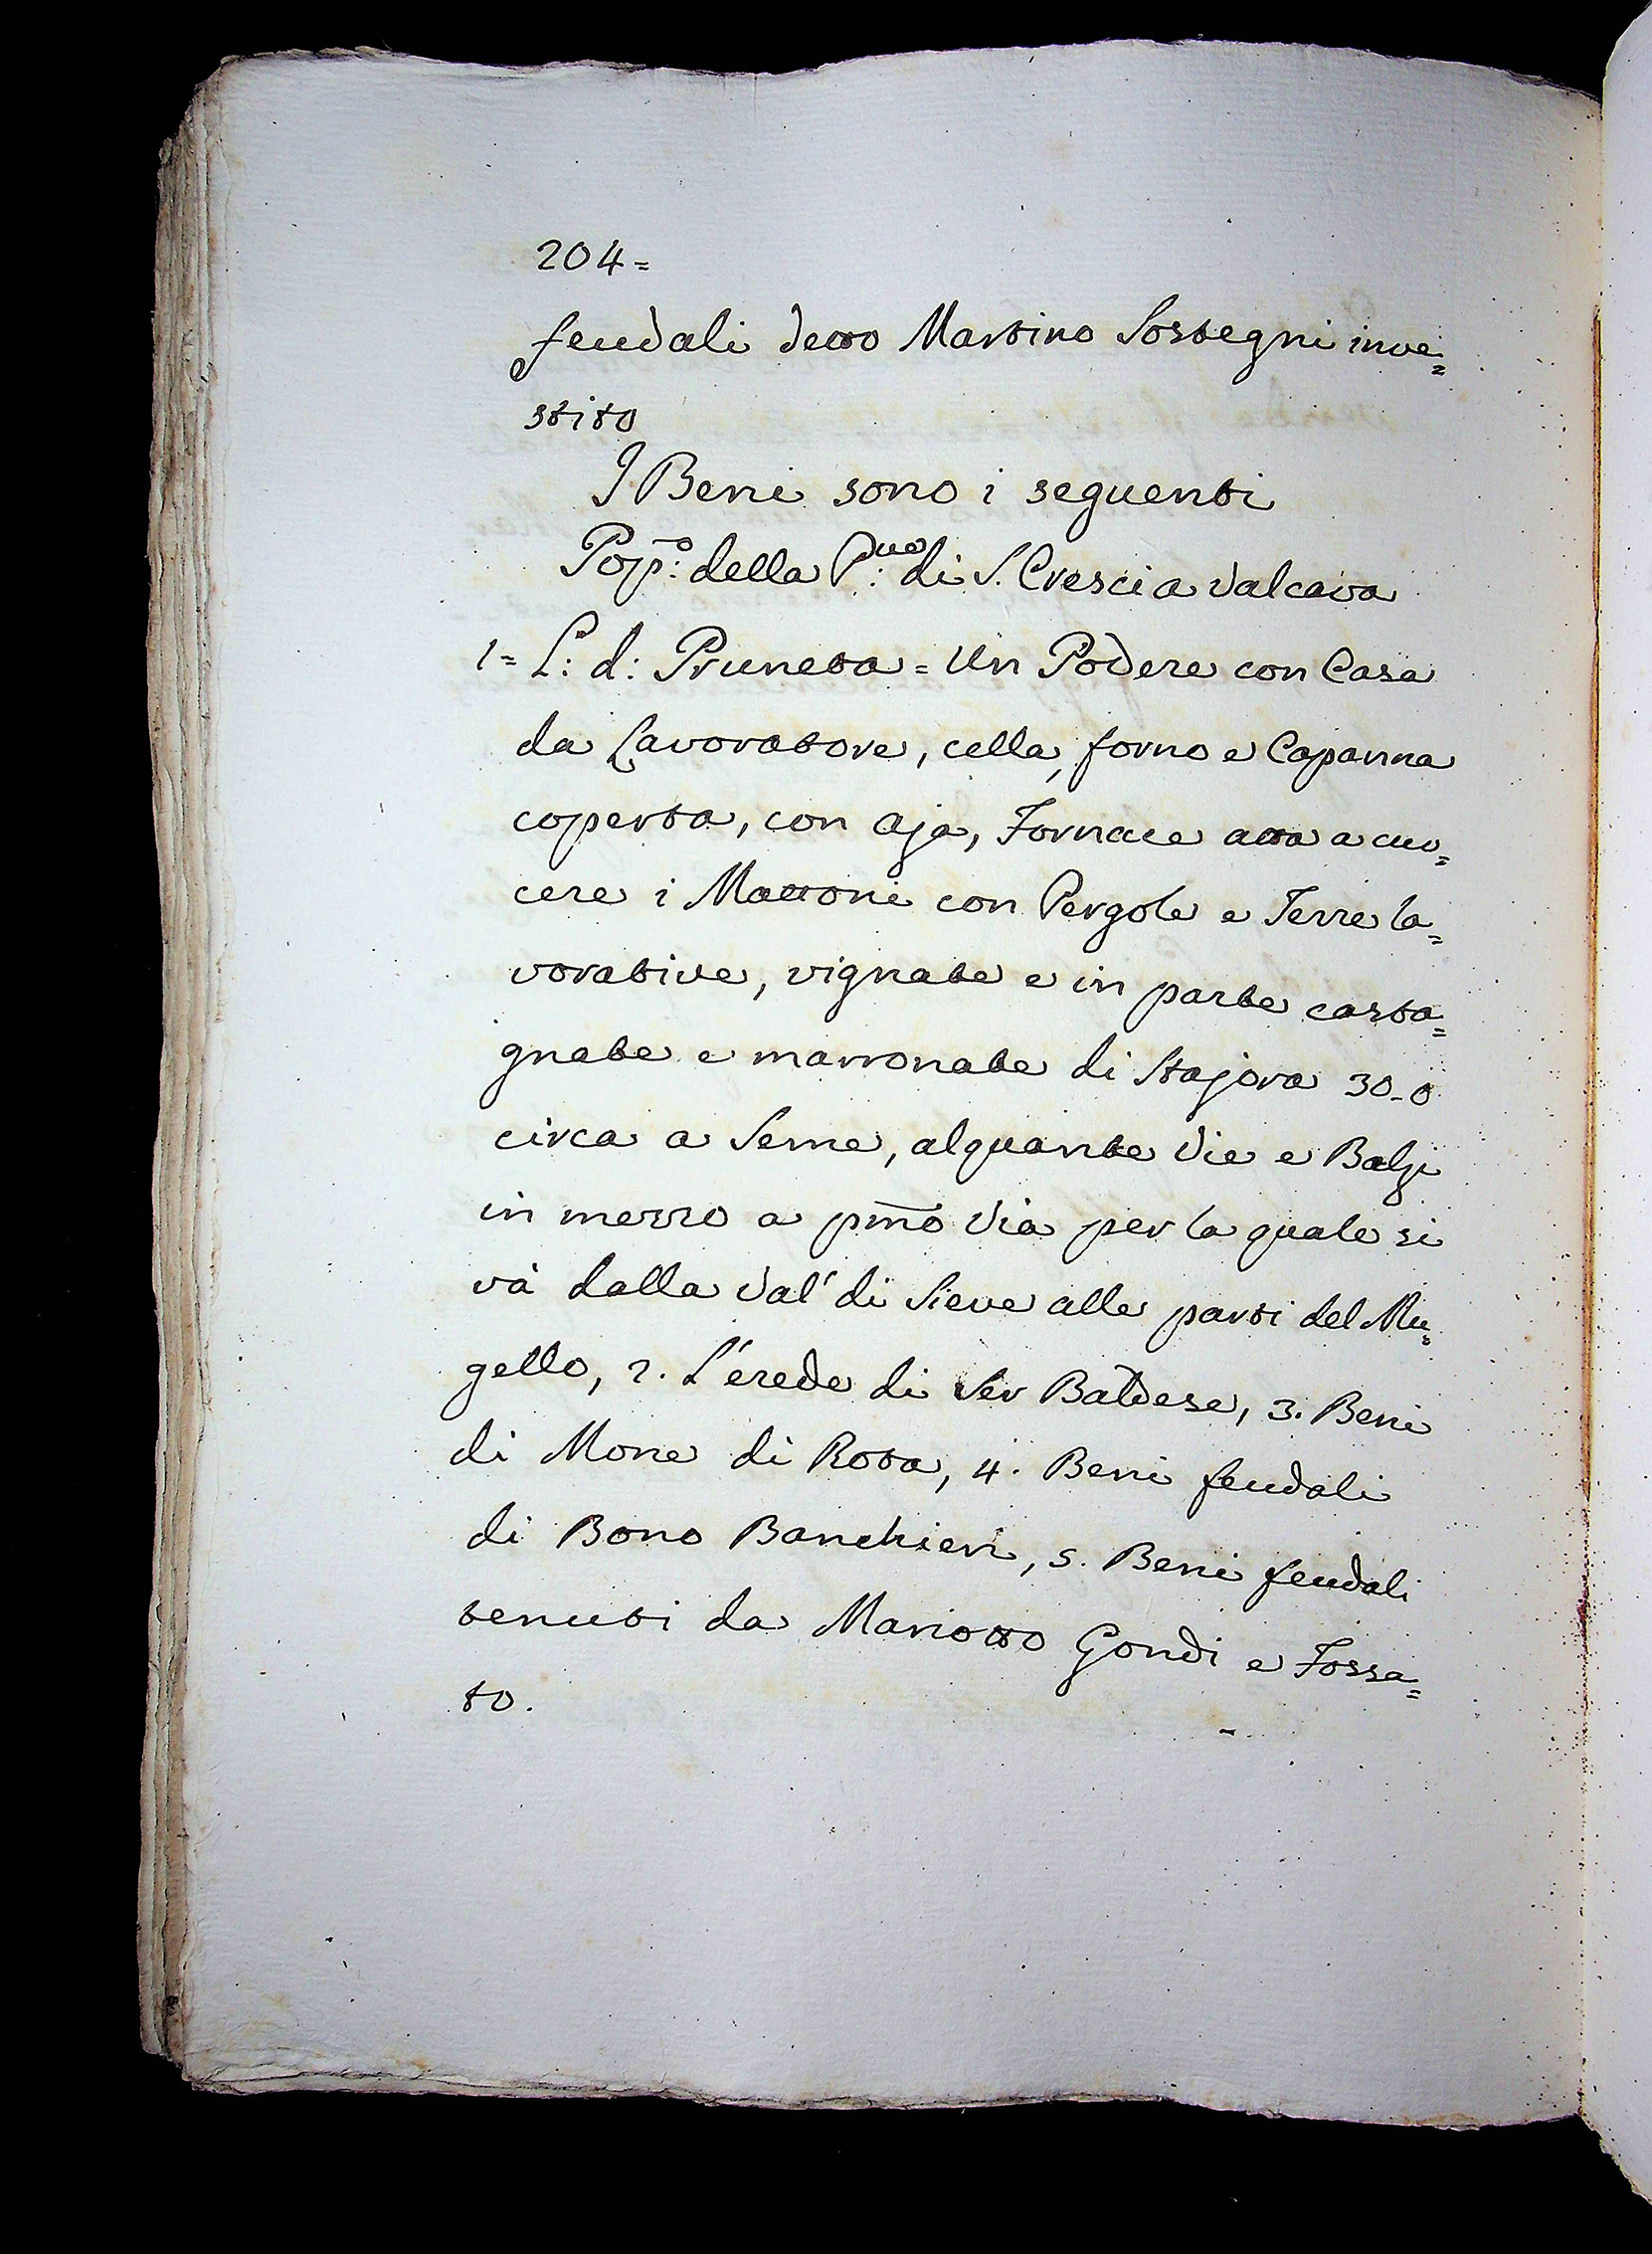 204=
feudali detto Martino Sostegni inve=
stito
I Beni sono i seguenti
Pop.o: della P.ve: di S. Cresci a Valcava
1= L: d: Pruneta = Un Podere con Casa
da Lavoratore, cella, forno e Capanna
coperta, con aja, Fornace atta a cuo=
cere i Mattoni con Pergole e Terre la=
vorative, vignate e in parte casta=
gnate e marronate di Stajora 30_0
circa a Seme, alquante Vie e Balzi
in mezzo a pm̃o Via per la quale si
và dalla Val' di Sieve alle parti del Mu=
gello, 2. L'erede di Ser Baldese, 3. Beni
di Mone di Rota, 4. Beni feudali
di Bono Banchieri, 5. Beni feudali
tenuti da Mariotto Gondi e Fossa=
to.